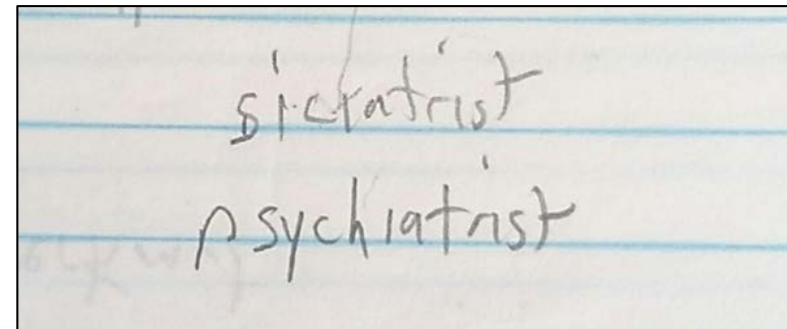 sictatrist
psychiatrist